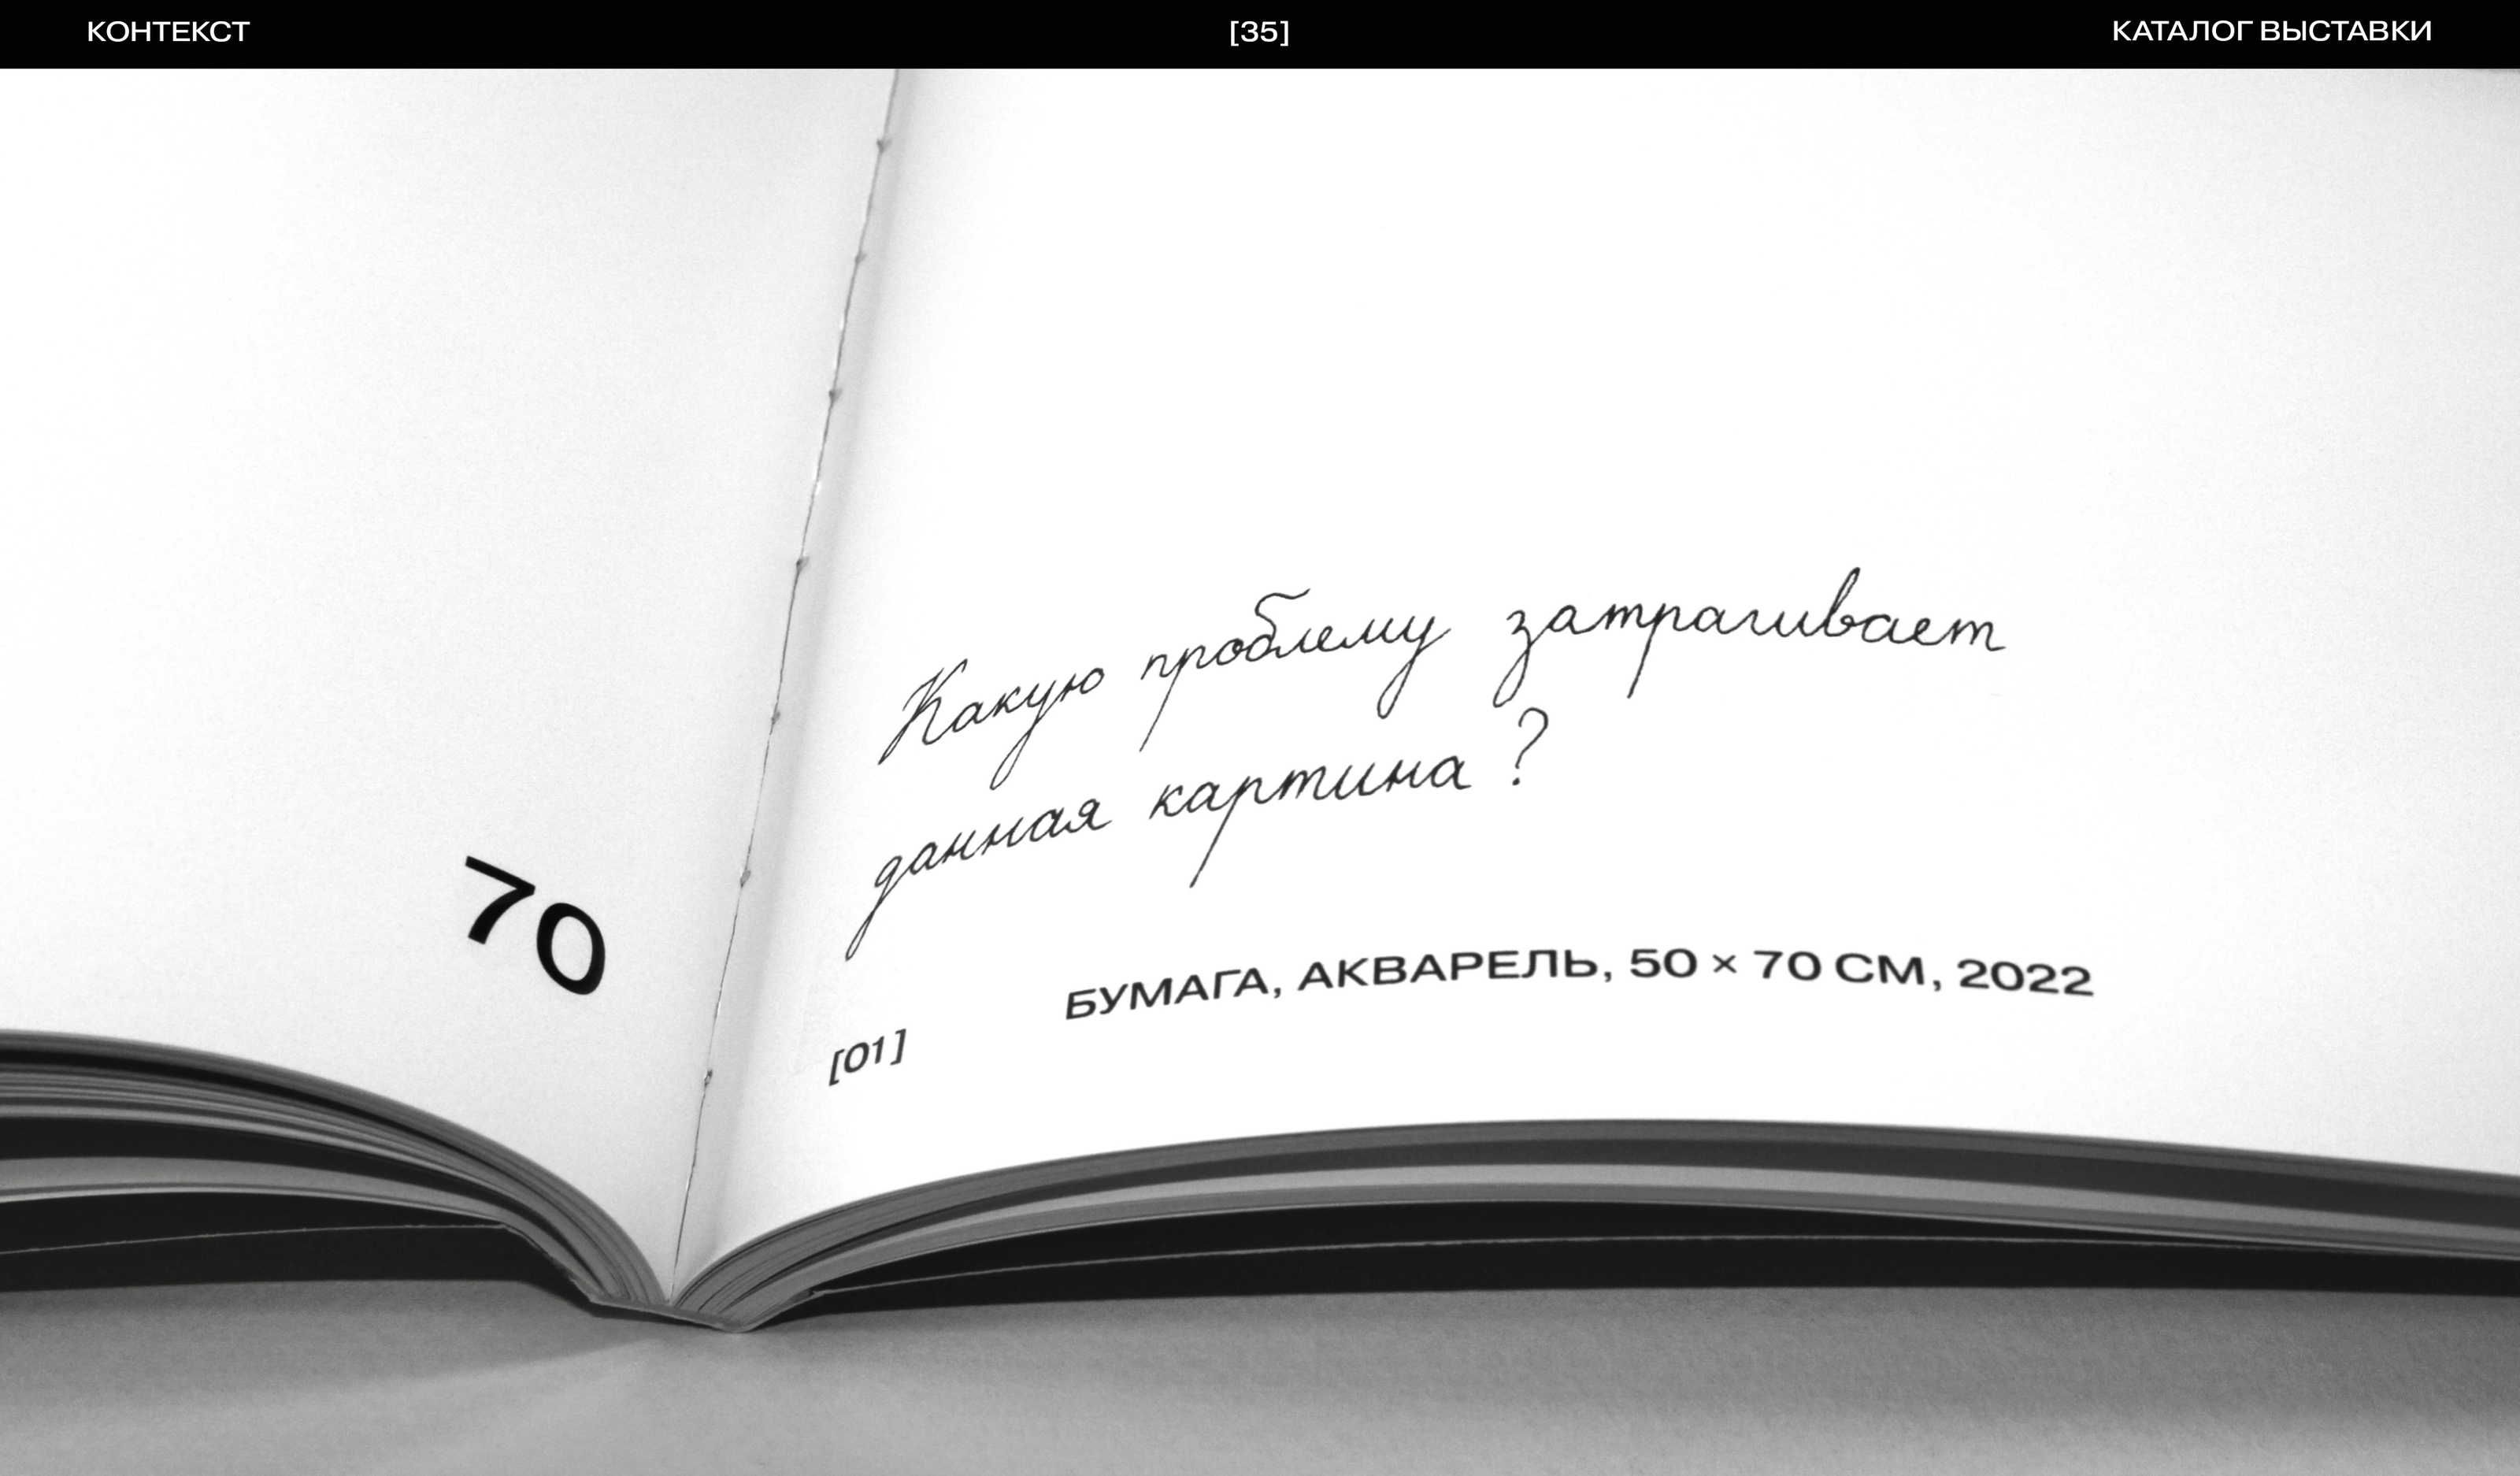 КОНТЕКСТ
[35]
КАТАЛОГ ВЫСТАВКИ
70
Какую проблему затрагивает
данная картина ?
БУМАГА, АКВАРЕЛЬ, 50 × 70 СМ, 2022
[01]